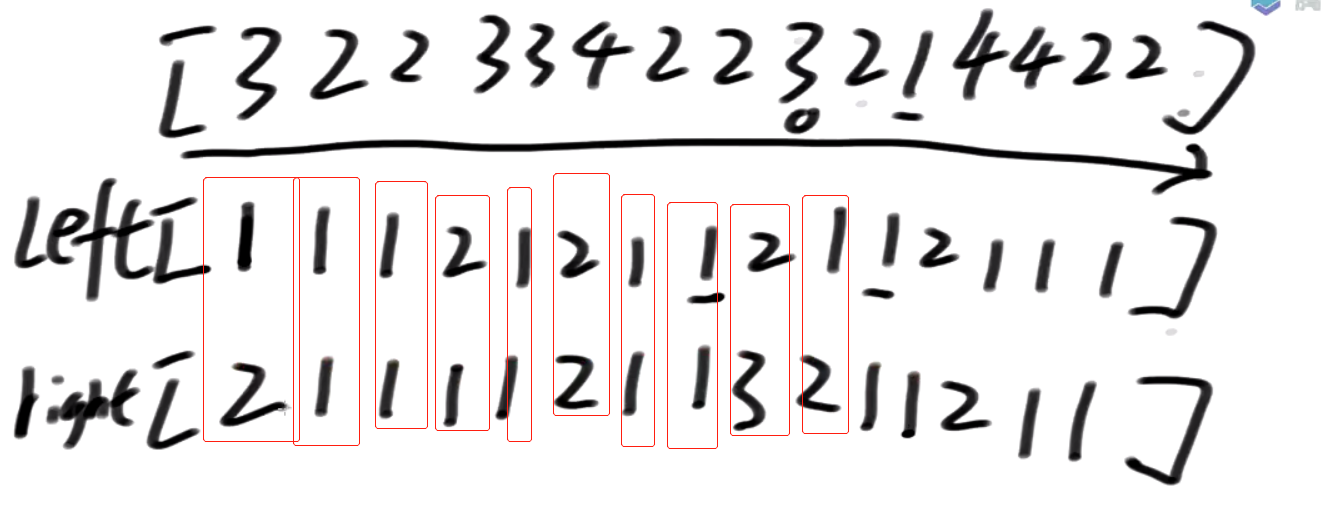 [3 2 2 3 3 4 2 2 3 2 1 4 4 2 2]
0
left[1 1 1 2 1 2 1 1 2 1 1 2 1 1 1]
right[2 1 1 1 1 2 1 1 3 2 1 1 2 1 1]